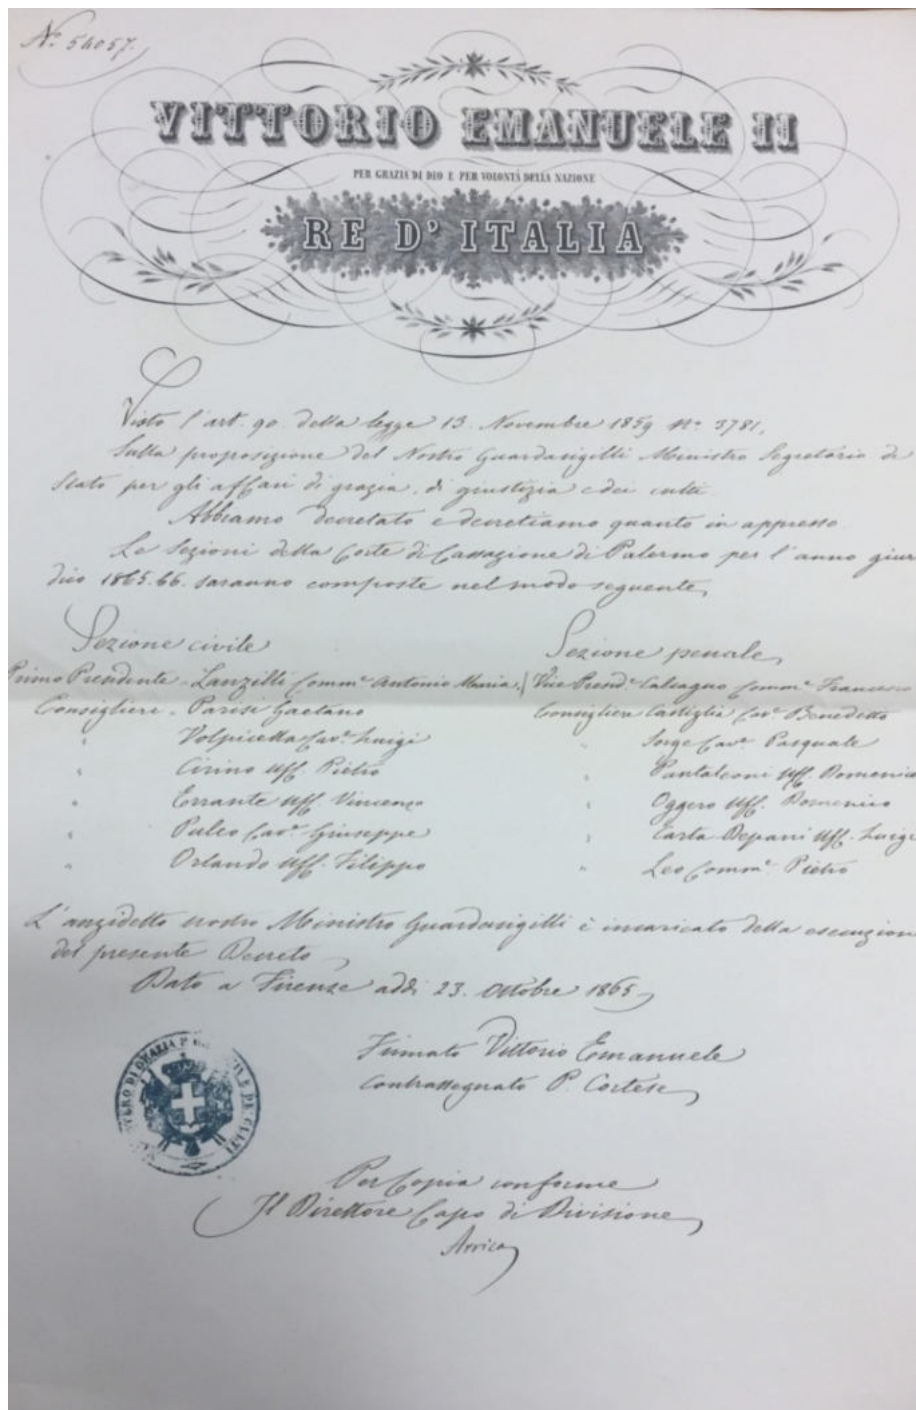 N.º 54057.
VITTORIO EMANUELE II
PER GRAZIA DI DIO E PER VOLONTÀ DELLA NAZIONE
RE D'ITALIA
Visto l'art. 90. della legge 13. Novembre 1859 Nº 3781,
Sulla proposizione del Nostro Guardasigilli Ministro Segretario di
Stato per gli affari di grazia, di giustizia e dei culti
Abbiamo decretato e decretiamo quanto in appresso
Le Sezioni della Corte di Cassazione di Palermo per l'anno giuri
dico 1865.66. saranno composte nel modo seguente,
Sezione civile
Primo Presidente - Lanzilli Comm.e Antonio Maria,
Consigliere - Parise Gaetano
" Volpicella Cav.e Luigi
" Cirino Uff. Pietro
" Errante Uff. Vincenzo
" Puleo Cav.e Giuseppe
" Orlando Uff. Filippo
Sezione penale,
Vice Presid.e Calcagno Comm.e Francesco
Consigliere Castiglia Cav.e Benedetto
" Sorge Cav.e Pasquale
" Pantaleoni Uff. Domenico
" Oggero Uff. Domenico
" Uff. Luigi
" Leo Comm.e Pietro
L'anzidetto nostro Ministro Guardasigilli è incaricato della esecuzion
del presente Decreto
Dato a Firenze addì 23. Ottobre 1865
Firmato Vittorio Emanuele
Contrassegnato P. Cortese
DI GRAZIA E DE CULTI
Per Copia conforme
Il Direttore Capo di Divisione